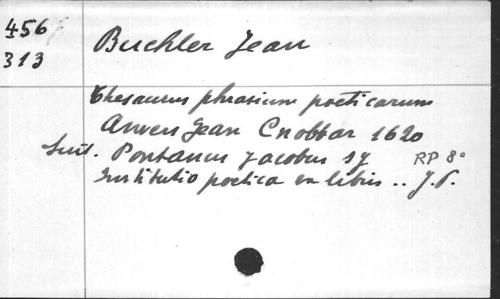 456
313
Buchler Jean
Thesaurus phrasium poeticarum
Anvers Jean Cnobbar 1620
Suit. Pontanus Jacobus SJ RP 8°
Institutio poetica ex libris .. J.P.